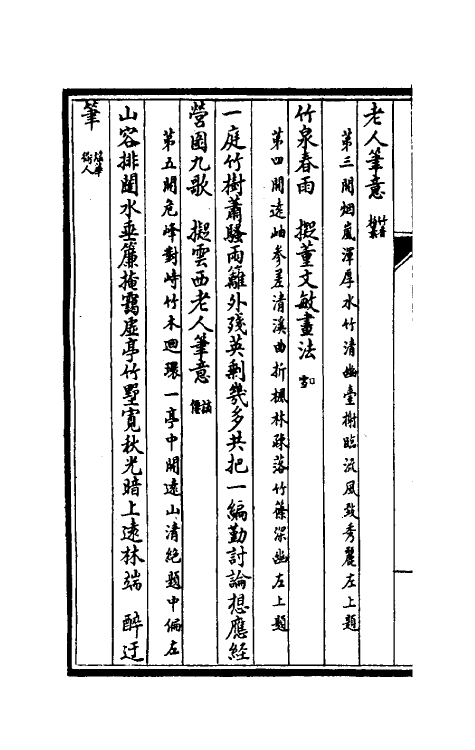 老人筆意
第三開烟嵐渾厚水竹清幽臺榭臨流風致秀麗左上題
竹泉春雨　擬董文敏畫法
第四開遠岫參差清溪曲折楓林疎落竹篠深幽左上題
一庭竹樹蕭騷雨籬外殘英剩幾多共把一編勤討論想應經
營團九歌　擬雲西老人筆意
第五開危峰對峙竹木迴環一亭中開遠山清絶題中偏左
山容排闥水垂簾掩靄虛亭竹墅寬秋光暗上遠林端　醉迂
筆